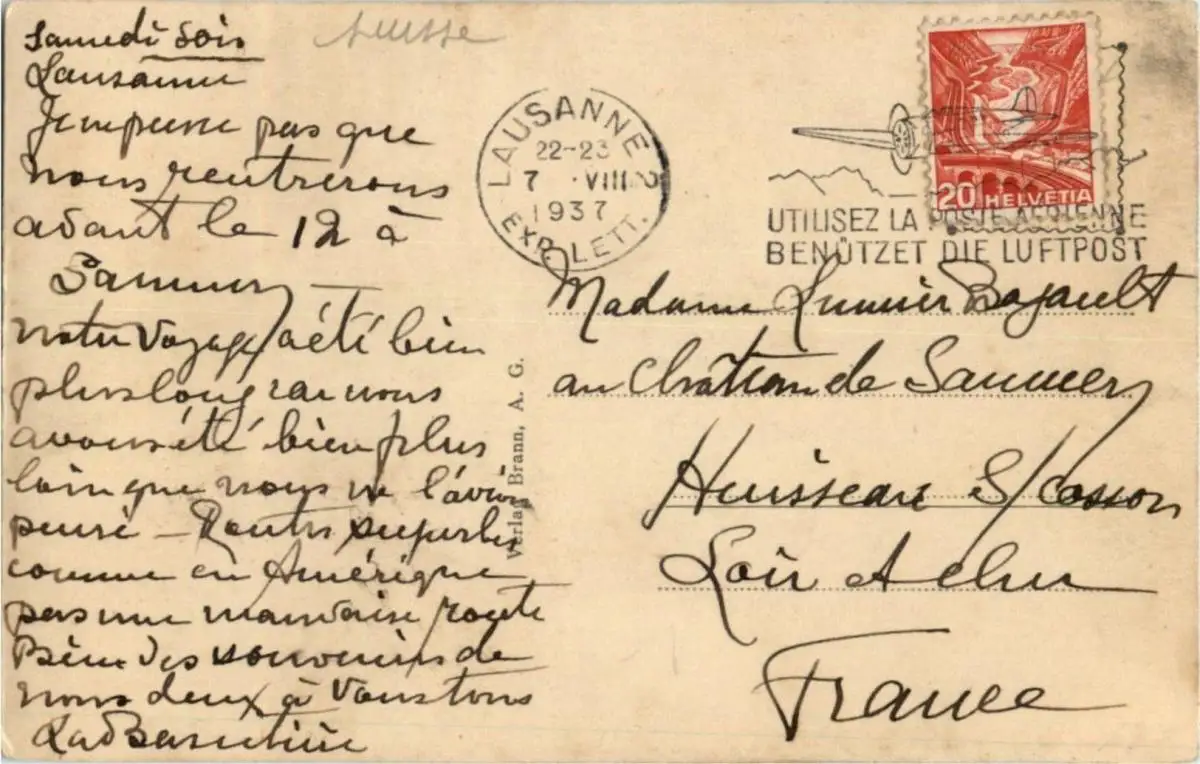 Samedi soir
Lausanne
Je ne pense pas que
nous rentrerons
avant le 12 à
Saumery —
notre voyage a été bien
plus long car nous
avons été bien plus
loin que nous ne l'avions
pensé — Routes superbes
comme en Amérique
pas une mauvaise route
Bien des souvenirs de
nous deux à vous tous
Suisse
LAUSANNE
22-23
7 .VIII
1937
EXP. LETT.
20 HELVETIA
UTILISEZ LA POSTE AÉRIENNE
BENÜTZET DIE LUFTPOST
Verlag Brann, A. G.
Madame
au Château de Saumery
Huisseau S/Cosson
Loir et cher
France